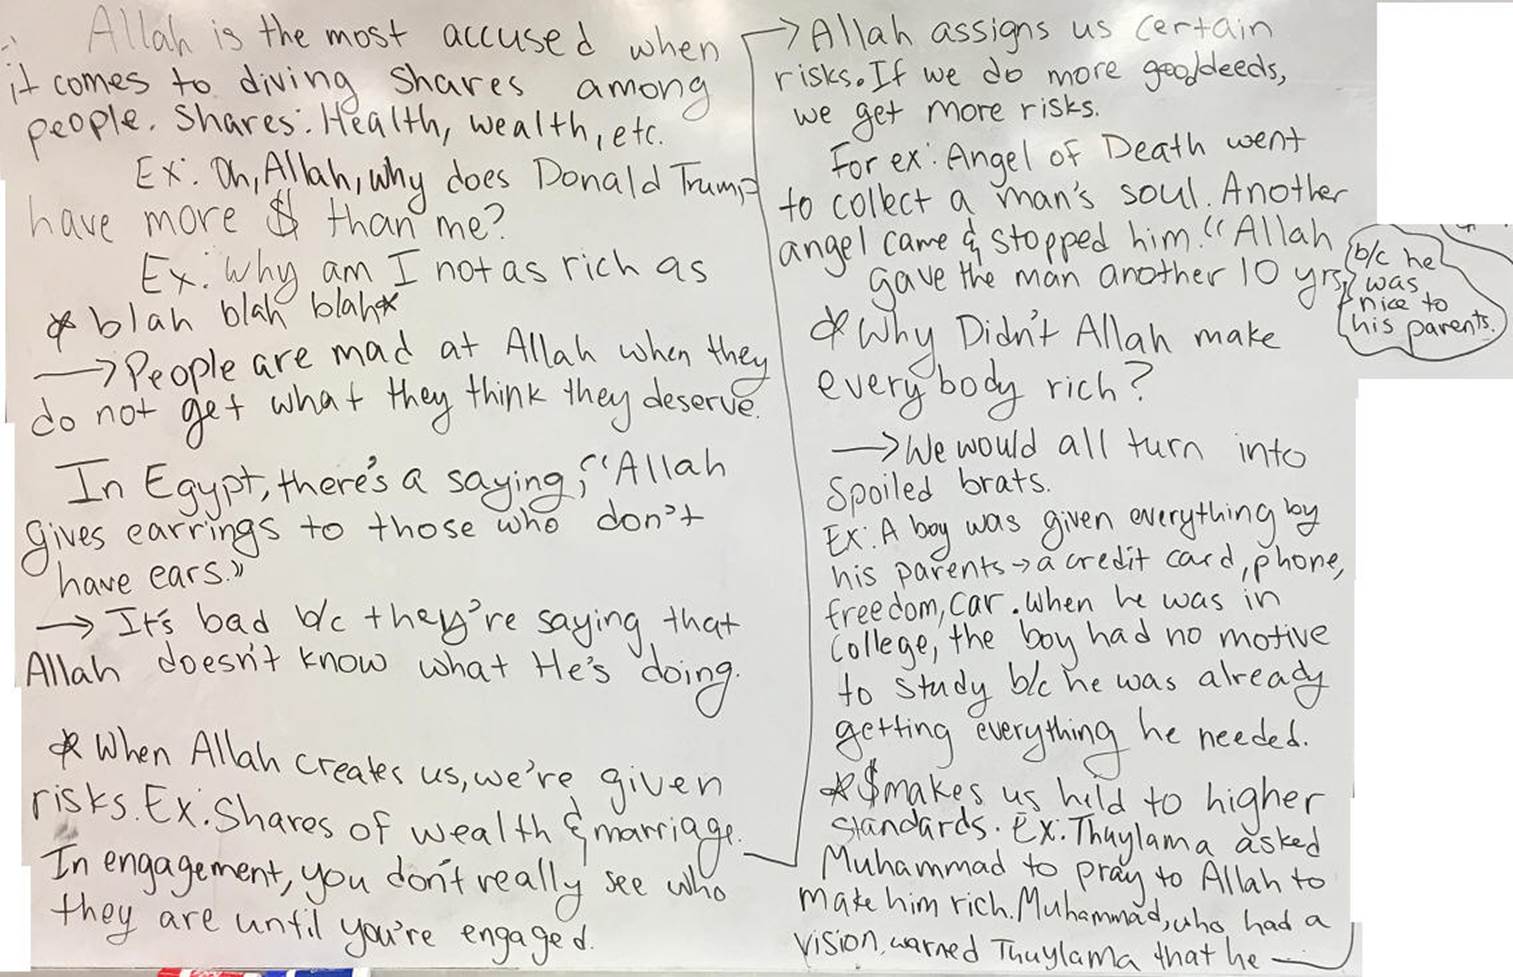 Allah is the most accused when
it comes to diving shares among
people. Shares: Health, wealth, etc.
Ex: Oh, Allah, why does Donald Trump
have more $ than me?
Ex: Why am I not as rich as
* blah blah blah*
→ People are mad at Allah when they
do not get what they think they deserve.
In Egypt, there's a saying, "Allah
gives earrings to those who don't
have ears."
→ It's bad b/c they're saying that
Allah doesn't know what He's doing.
* When Allah creates us, we're given
risks. Ex: Shares of wealth & marriage.
In engagement, you don't really see who
they are until you're engaged.
→ Allah assigns us certain
risks. If we do more good deeds,
we get more risks.
For ex: Angel of Death went
to collect a man's soul. Another
angel came & stopped him. "Allah
gave the man another 10 yrs,
b/c he
was
nice to
his parents.
* Why Didn't Allah make
everybody rich?
→ We would all turn into
spoiled brats.
Ex: A boy was given everything by
his parents → a credit card, phone,
freedom, car. When he was in
college, the boy had no motive
to study b/c he was already
getting everything he needed.
* $ makes us held to higher
standards. Ex: Thuylama asked
Muhammad to pray to Allah to
make him rich. Muhammad, who had a
vision, warned Thuylama that he